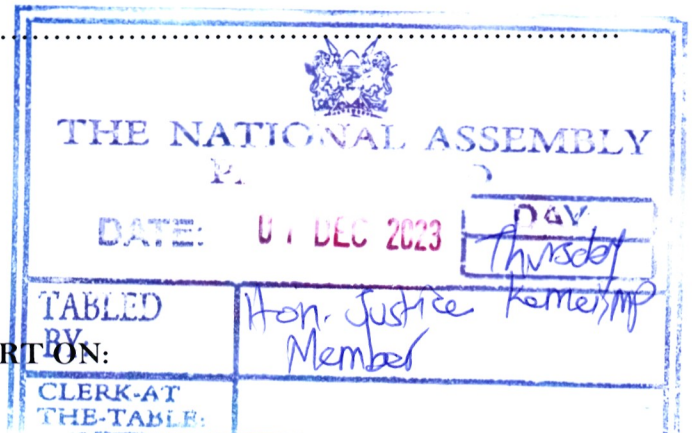 THE NATIONAL ASSEMBLY
DATE: 07 DEC 2023 DAY
Thursday
TABLED Hon. Justice Kemei, MP
BY Member
RT ON:
CLERK-AT
THE-TABLE: